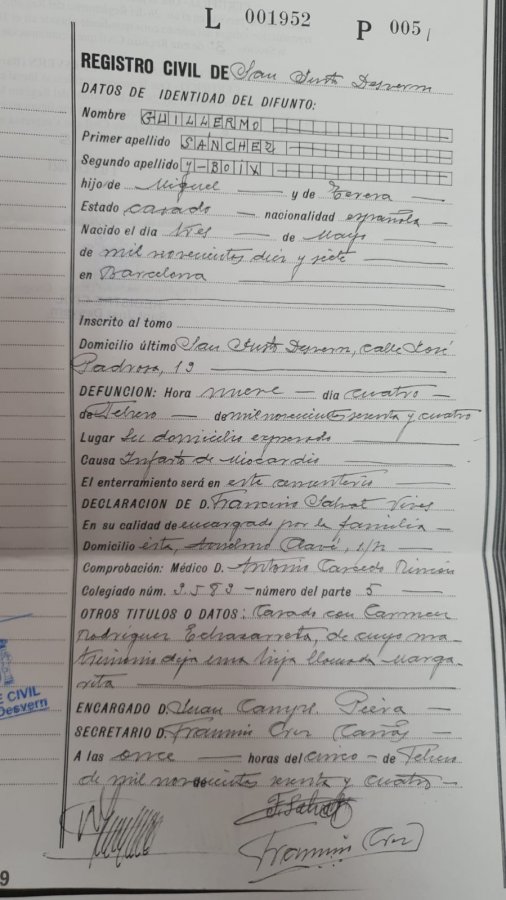 L 001952 P 005
REGISTRO CIVIL DE San Justo Desvern
DATOS DE IDENTIDAD DEL DIFUNTO:
Nombre GUILLERMO
Primer apellido SANCHEZ
Segundo apellido Y-BOIX
hijo de Miguel — y de Teresa —
Estado casado — nacionalidad española —
Nacido el día tres — de Mayo —
de mil novecientos diez y siete
en Barcelona
Inscrito al tomo
Domicilio último San Justo Desvern, calle José
Padrosa, 19 —
DEFUNCION: Hora nueve — día cuatro —
de Febrero — de mil novecientos sesenta y cuatro
Lugar Su domicilio expresado —
Causa Infarto de Miocardio —
El enterramiento será en este cementerio —
DECLARACION DE D. Francisco Salvat Vives
En su calidad de encargado por la familia —
Domicilio ésta, Anselmo Clavé, s/n —
Comprobación: Médico D. Antonio Rincón
Colegiado núm. 3583 — número del parte 5 —
OTROS TITULOS O DATOS: Casado con Carmen
Rodríguez Echazarreta, de cuyo ma-
trimonio deja una hija llamada Marga-
rita —
ENCARGADO D. Juan Campe —
SECRETARIO D. Francisco Cruz —
A las once — horas del cinco — de Febrero
de mil novecientos sesenta y cuatro —
F. Salvat
Francisco Cruz
E CIVIL
Desvern
9